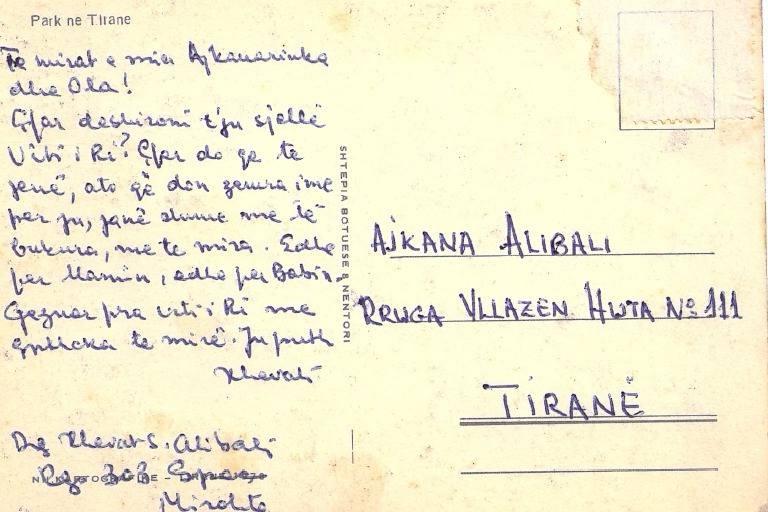 Park ne Tirane
Te mirat e mia Ajkanarinka
dhe Ola!
Çfar deshironi t'ju sjellë
Viti i Ri? Çfar do qe te
jenë, ato që don zemra ime
per ju, janë shume me të
bukura, me te mira. Edhe
per Mamin, edhe per Babin.
Gezuar pra viti i Ri me
gjithçka te mirë. Ju puth
Xhevati
Drg Xhevat S. Alibali
Rep 303 Spaç
Mirdite
SHTEPIA BOTUESE 8 NENTORI
AJKANA ALIBALI
RRUGA VLLAZEN HUTA Nº 111
TIRANË